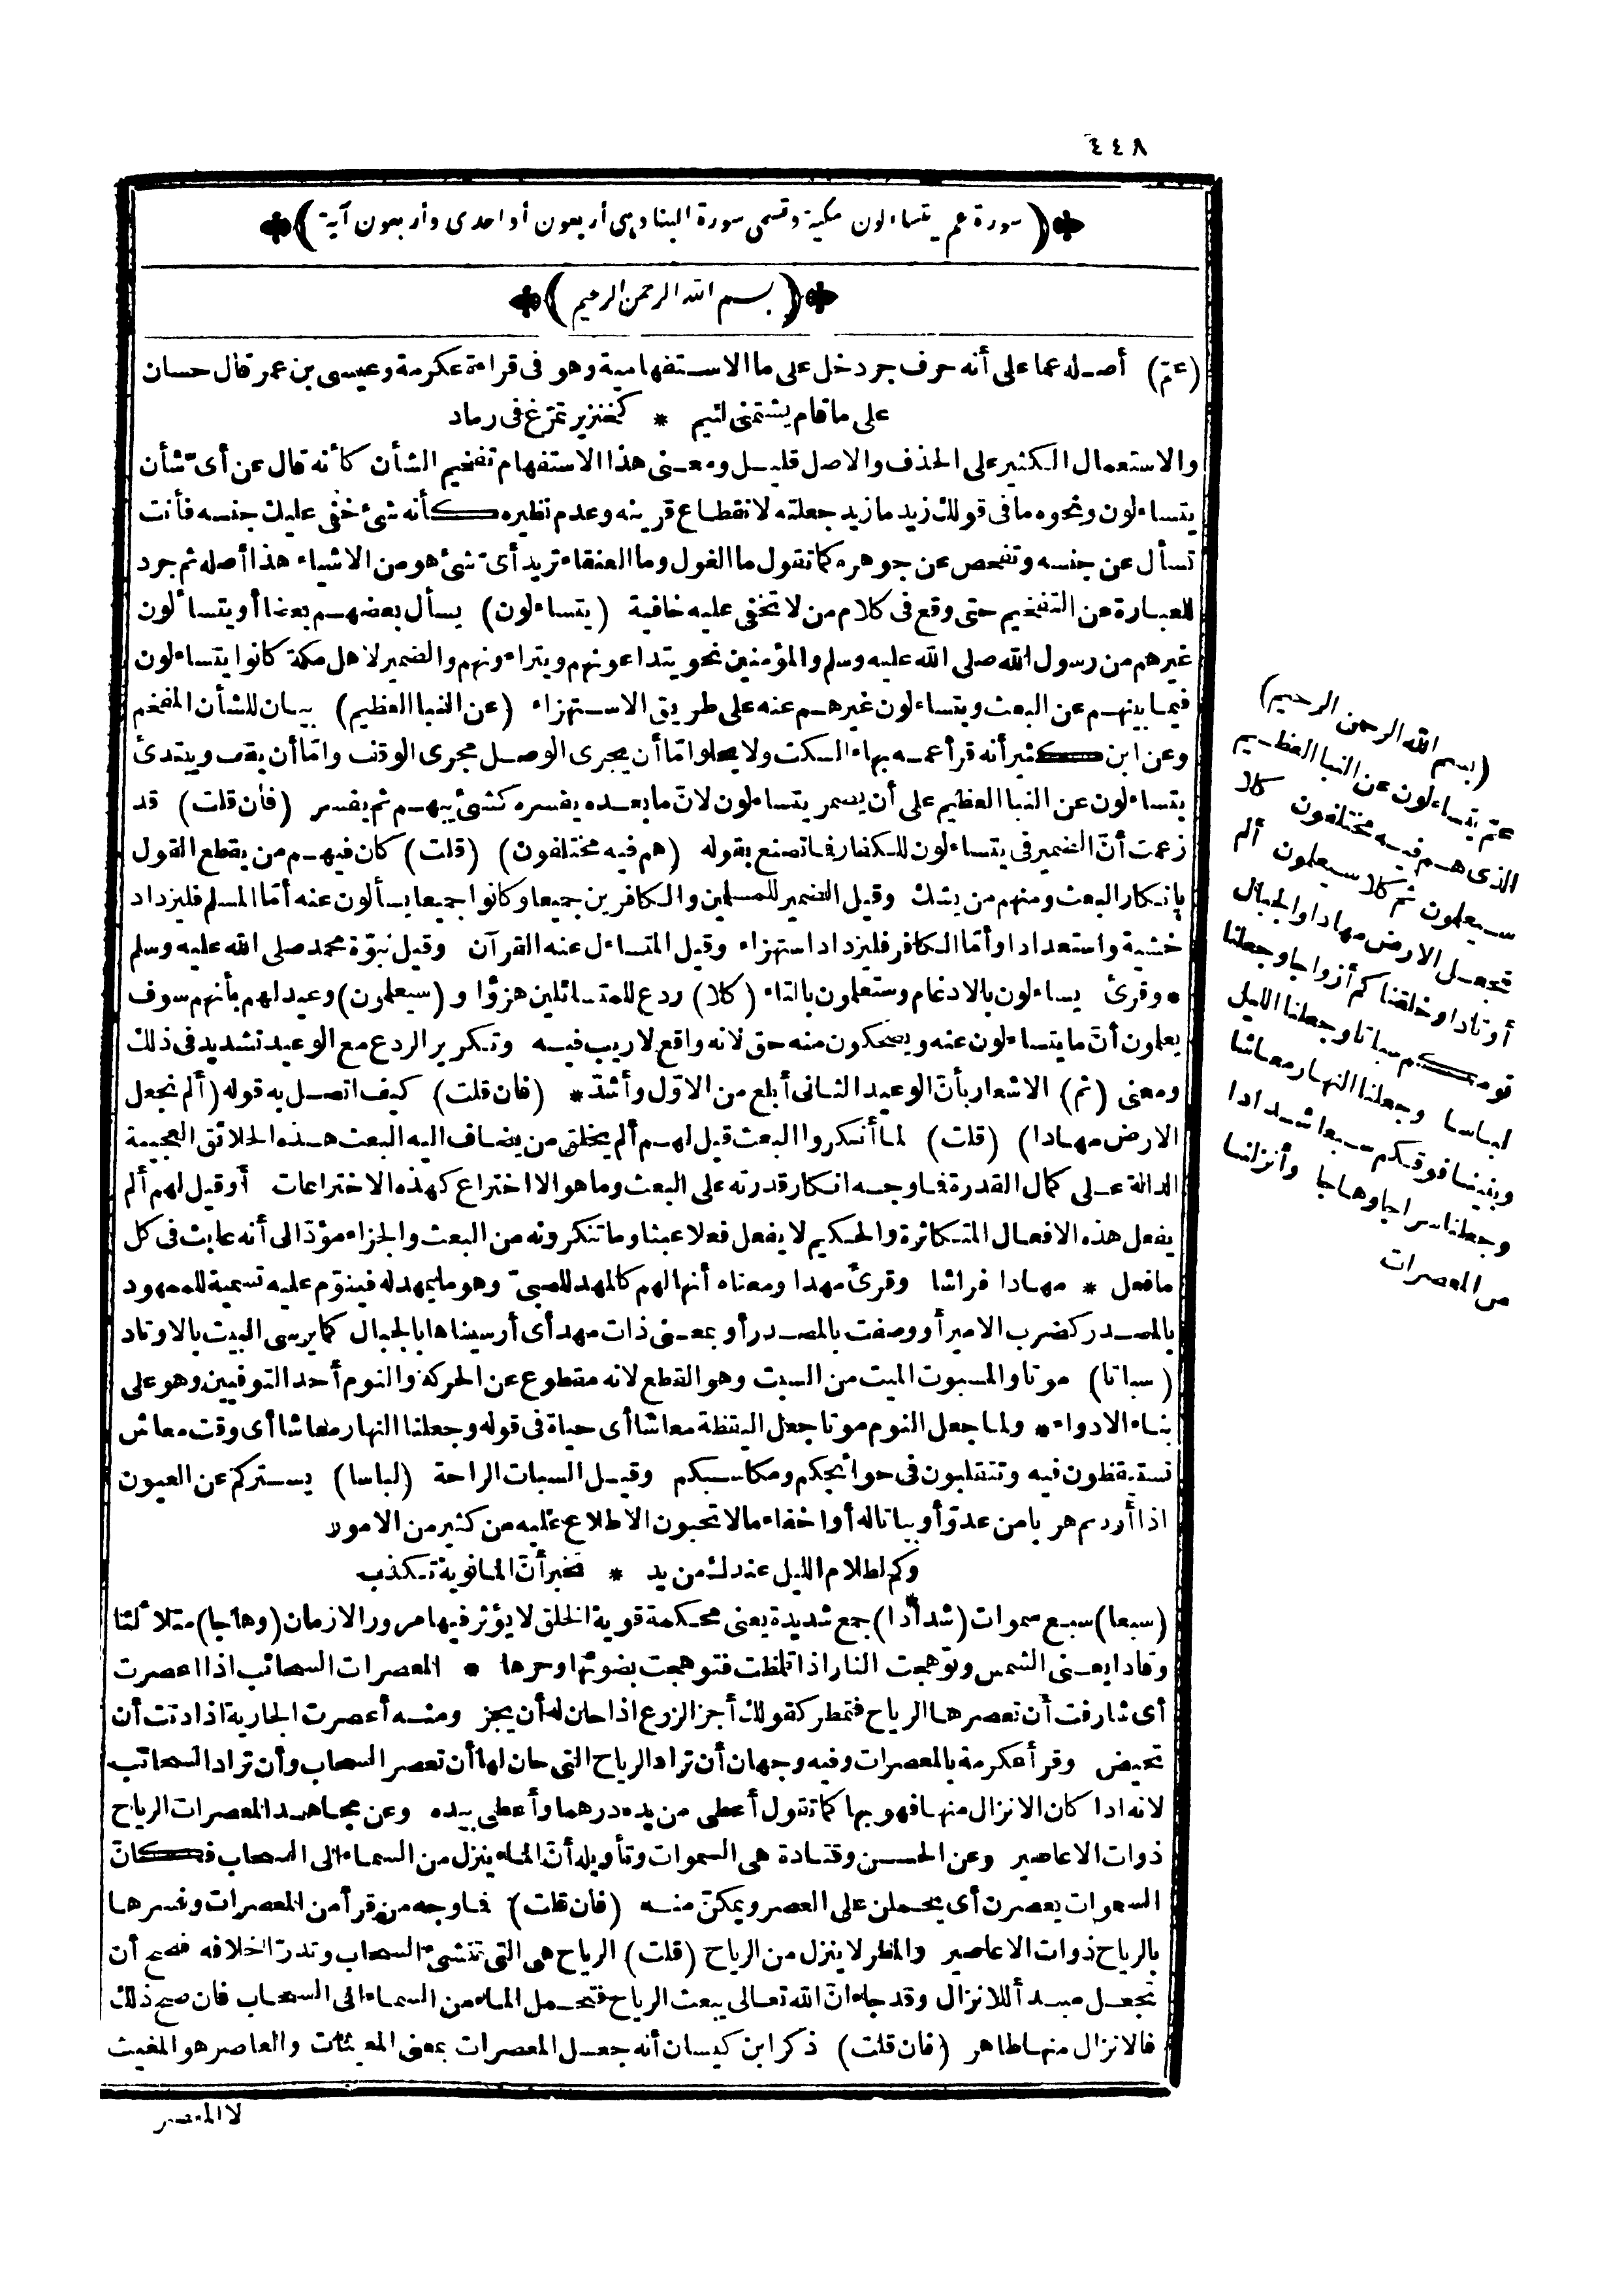 ٤٤٨
(سورة عم يتساءلون مكية وتسمى سورة النبا وهى أربعون أو احدى وأربعون آية)
(بسم الله الرحمن الرحيم)
(عمّ) أصله عما على أنه حرف جر دخل على ما الاستفهامية وهو فى قراءة عكرمة وعيسى بن عمر قال حسان
على ما قام يشتمنى لئيم * كخنزير تمرّغ فى رماد
والاستعمال الكثير على الحذف والاصل قليل ومعنى هذا الاستفهام تفخيم الشأن كأنه قال عن أىّ شأن
يتساءلون ونحوه ما فى قولك زيد ما زيد جعلته لانقطاع قرينه وعدم نظيره كأنه شئ خفى عليك جنسه فأنت
تسأل عن جنسه وتفحص عن جوهره كما تقول ما الغول وما العنقاء تريد أىّ شئ هو من الاشياء هذا أصله ثم جرد
للعبارة عن التفخيم حتى وقع فى كلام من لا تخفى عليه خافية (يتساءلون) يسأل بعضهم بعضا أو يتساءلون
غيرهم من رسول الله صلى الله عليه وسلم والمؤمنين نحو يتداعونهم ويتراءونهم والضمير لاهل مكة كانوا يتساءلون
فيما بينهم عن البعث ويتساءلون غيرهم عنه على طريق الاستهزاء (عن النبا العظيم) بيان للشأن المفخم
وعن ابن كثير أنه قرأ عمه بهاء السكت ولا يخلو امّا أن يجرى الوصل مجرى الوقف وامّا أن يقف ويبتدئ
يتساءلون عن النبا العظيم على أن يضمر يتساءلون لانّ ما بعده يفسره كشئ يبهم ثم يفسر (فان قلت) قد
زعمت أنّ الضمير فى يتساءلون للكفار فما تصنع بقوله (هم فيه مختلفون) (قلت) كان فيهم من يقطع القول
بانكار البعث ومنهم من يشك وقيل الضمير للمسلمين والكافرين جميعا وكانوا جميعا يسألون عنه أمّا المسلم فليزداد
خشية واستعدادا وأمّا الكافر فليزداد استهزاء وقيل المتساءل عنه القرآن وقيل نبوّة محمد صلى الله عليه وسلم
* وقرئ يساءلون بالادغام وستعلمون بالتاء (كلا) ردع للمتسائلين هزؤا و (سيعلمون) وعيد لهم بأنهم سوف
يعلمون أنّ ما يتساءلون عنه ويضحكون منه حق لانه واقع لا ريب فيه وتكرير الردع مع الوعيد تشديد فى ذلك
ومعنى (ثم) الاشعار بأنّ الوعيد الثانى أبلغ من الاوّل وأشدّ * (فان قلت) كيف اتصل به قوله (ألم نجعل
الارض مهادا) (قلت) لما أنكروا البعث قيل لهم ألم يخلق من يضاف اليه البعث هذه الخلائق العجيبة
الدالة على كمال القدرة فما وجه انكار قدرته على البعث وما هو الا اختراع كهذه الاختراعات أو قيل لهم ألم
يفعل هذه الافعال المتكاثرة والحكيم لا يفعل فعلا عبثا وما تنكرونه من البعث والجزاء مؤدّ الى أنه عابث فى كل
ما فعل * مهادا فراشا وقرئ مهدا ومعناه أنها لهم كالمهد للصبىّ وهو ما يمهد له فينوّم عليه تسمية للممهود
بالمصدر كضرب الامير أو وصفت بالمصدر أو بمعنى ذات مهد أى أرسيناها بالجبال كما يرسى البيت بالاوتاد
(سباتا) موتا والمسبوت الميت من السبت وهو القطع لانه مقطوع عن الحركة والنوم أحد التوفيين وهو على
بناء الادواء * ولما جعل النوم موتا جعل اليقظة معاشا أى حياة فى قوله وجعلنا النهار معاشا أى وقت معاش
تستيقظون فيه وتتقلبون فى حوائجكم ومكاسبكم وقيل السبات الراحة (لباسا) يستركم عن العيون
اذا أردتم هربا من عدوّ أو بياتا له أو اخفاء ما لا تحبون الاطلاع عليه من كثير من الامور
وكم لظلام الليل عندك من يد * تخبر أنّ المانوية تكذب
(سبعا) سبع سموات (شدادا) جمع شديدة يعنى محكمة قوية الخلق لا يؤثر فيها مرور الازمان (وهاجا) متلألئا
وقادا يعنى الشمس وتوهجت النار اذا تلظت فتوهجت بضوئها وحرها * المعصرات السحائب اذا أعصرت
أى شارفت أن تعصرها الرياح فتمطر كقولك أجز الزرع اذا حان له أن يجز ومنه أعصرت الجارية اذا دنت أن
تحيض وقرأ عكرمة بالمعصرات وفيه وجهان أن تراد الرياح التى حان لها أن تعصر السحاب وأن تراد السحائب
لانه اذا كان الانزال منها فهو بها كما تقول أعطى من يده درهما وأعطى بيده وعن مجاهد المعصرات الرياح
ذوات الاعاصير وعن الحسن وقتادة هى السموات وتأويله أنّ الماء ينزل من السماء الى السحاب فكانّ
السموات يعصرن أى يحملن على العصر ويمكنّ منه (فان قلت) فما وجه من قرأ من المعصرات وفسرها
بالرياح ذوات الاعاصير والمطر لا ينزل من الرياح (قلت) الرياح هى التى تنشئ السحاب وتدرّ اخلافه فصح أن
تجعل مبدأ للانزال وقد جاء انّ الله تعالى يبعث الرياح فتحمل الماء من السماء الى السحاب فان صح ذلك
فالانزال منها ظاهر (فان قلت) ذكر ابن كيسان أنه جعل المعصرات بمعنى المغيثات والعاصر هو المغيث
لا المعصر
(بسم الله الرحمن الرحيم)
عمّ يتساءلون عن النبا العظيم
الذى هم فيه مختلفون كلا
سيعلمون ثم كلا سيعلمون ألم
نجعل الارض مهادا والجبال
أوتادا وخلقناكم أزواجا وجعلنا
نومكم سباتا وجعلنا الليل
لباسا وجعلنا النهار معاشا
وبنينا فوقكم سبعا شدادا
وجعلنا سراجا وهاجا وأنزلنا
من المعصرات